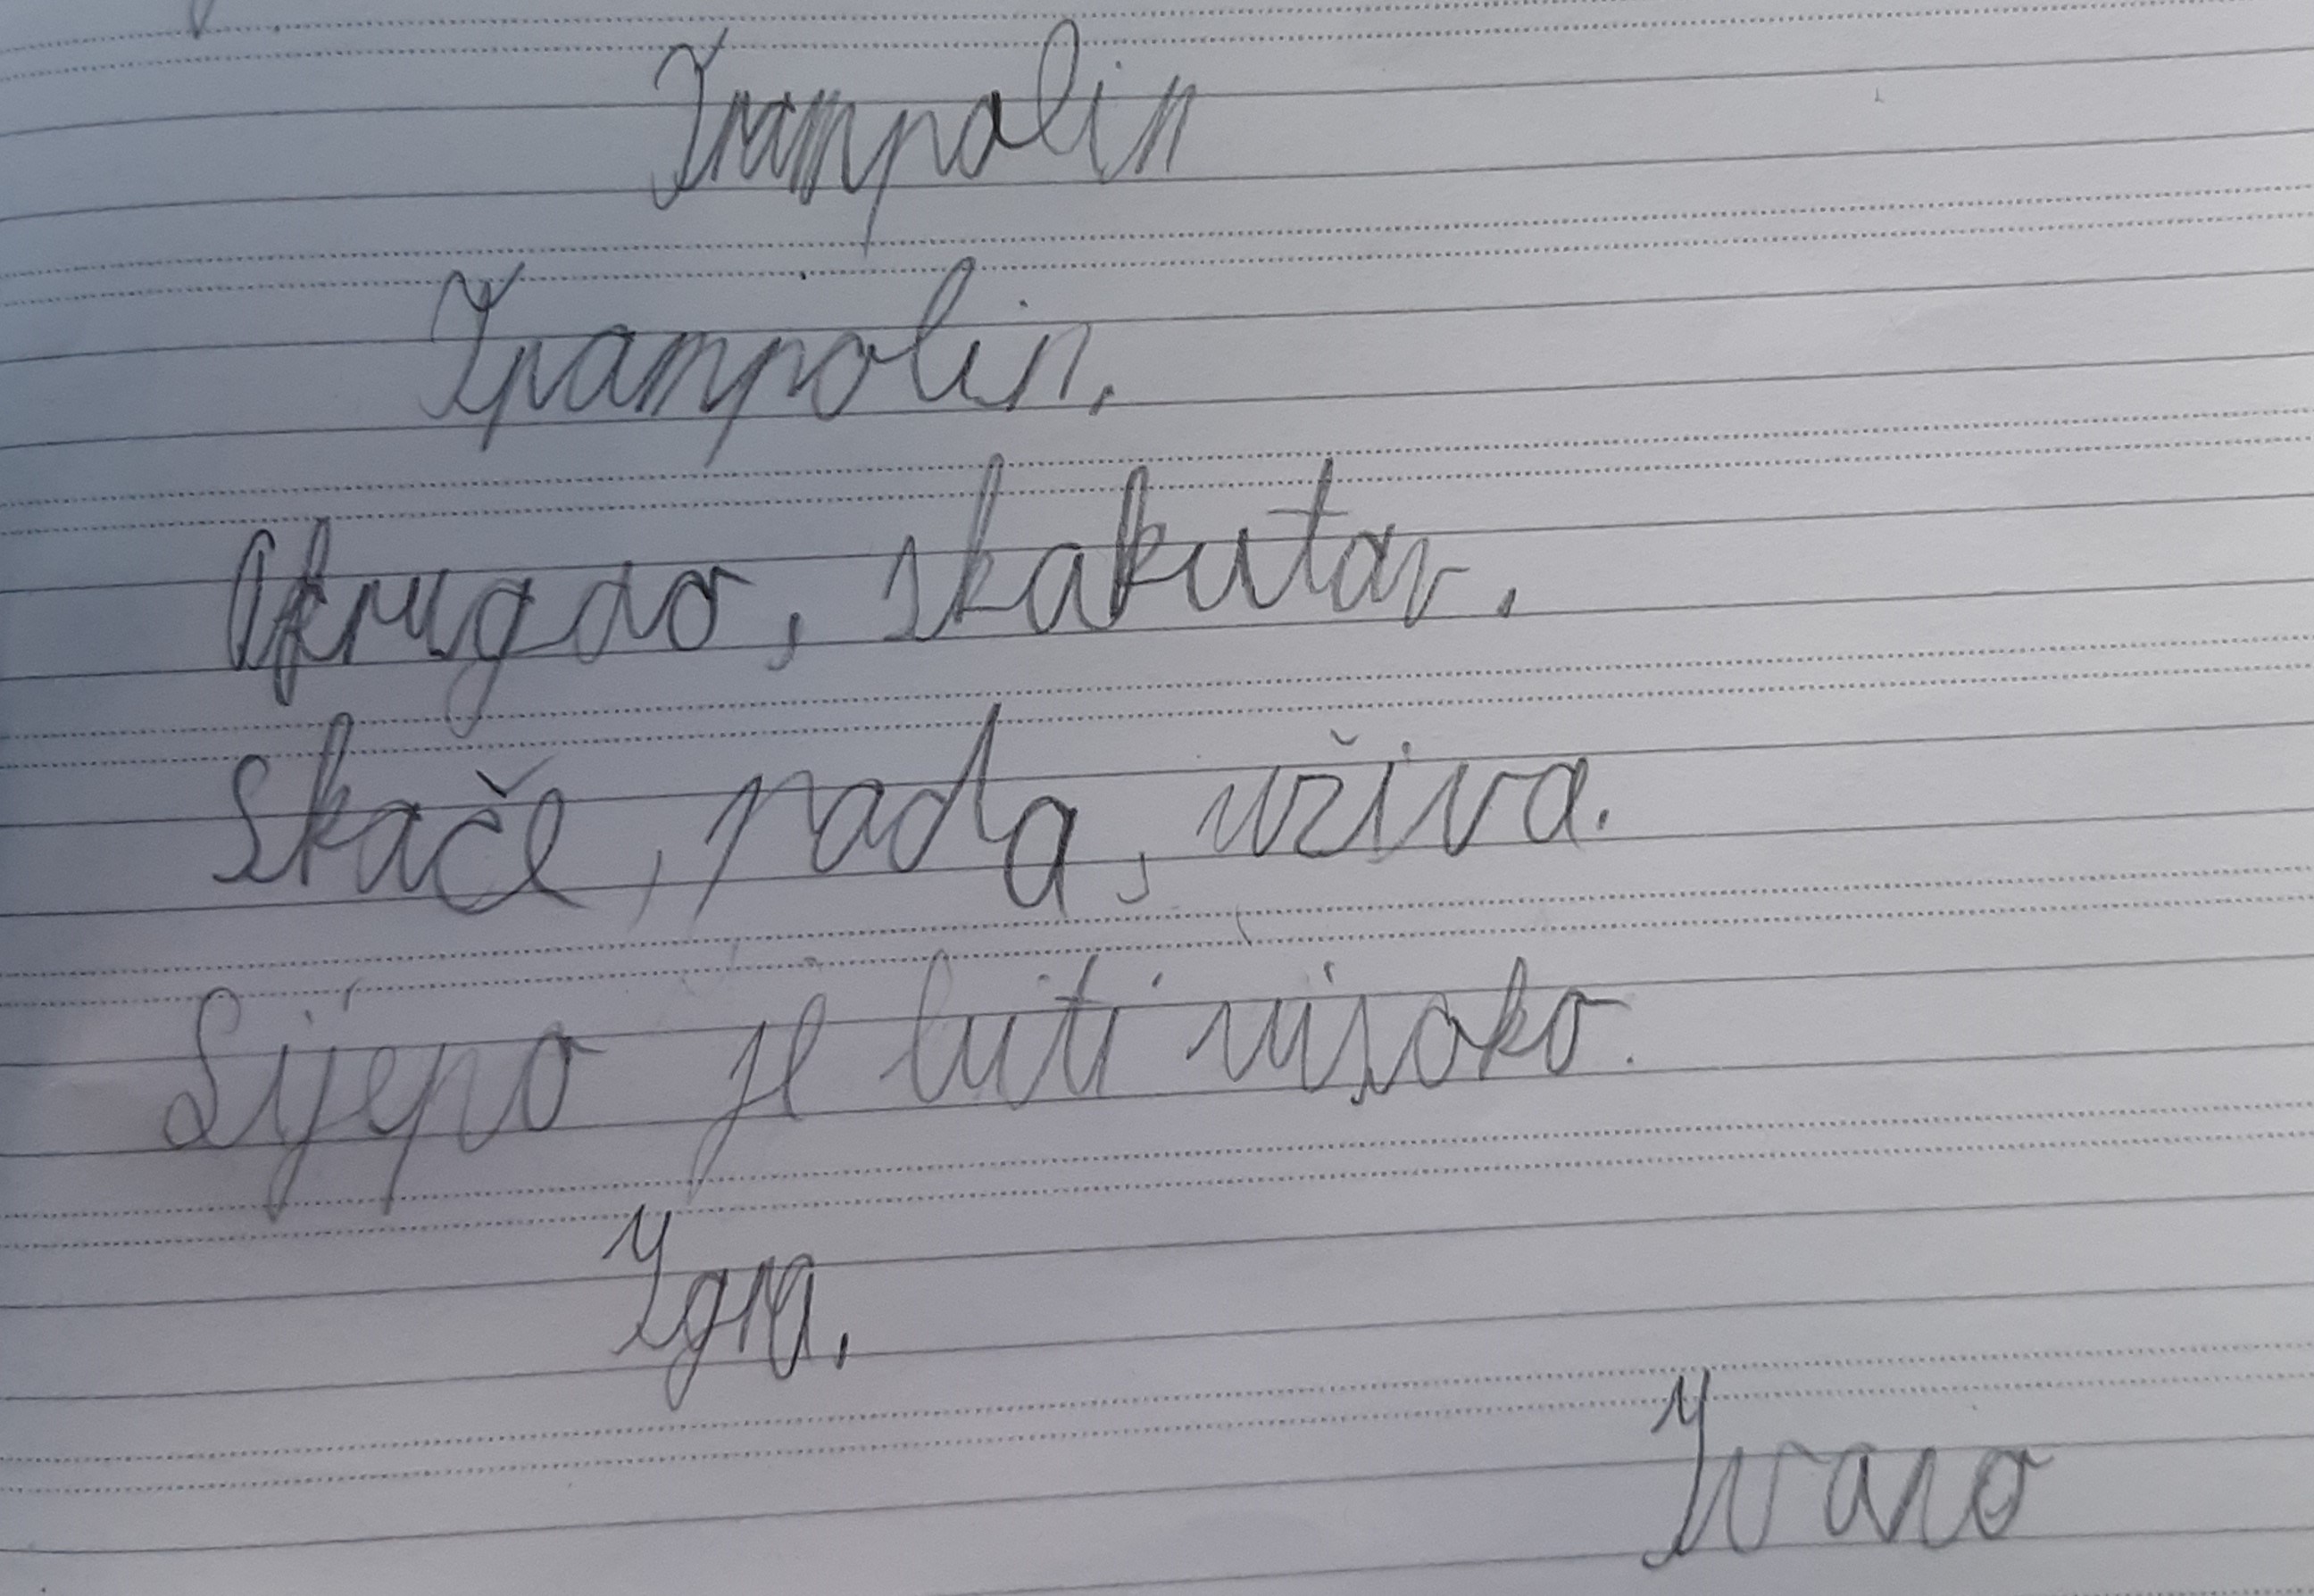 Trampolin
Trampolin.
Okrugao, skakutav.
Skače, pada, uživa.
Lijepo je biti visoko.
Igra.
Ivano